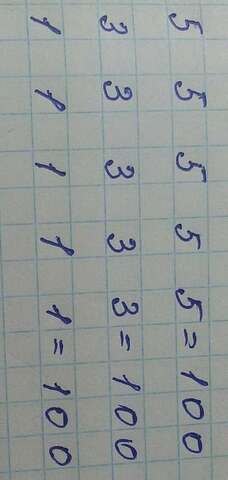 5 5 5 5 5 = 100
3 3 3 3 3 = 100
1 1 1 1 1 = 100